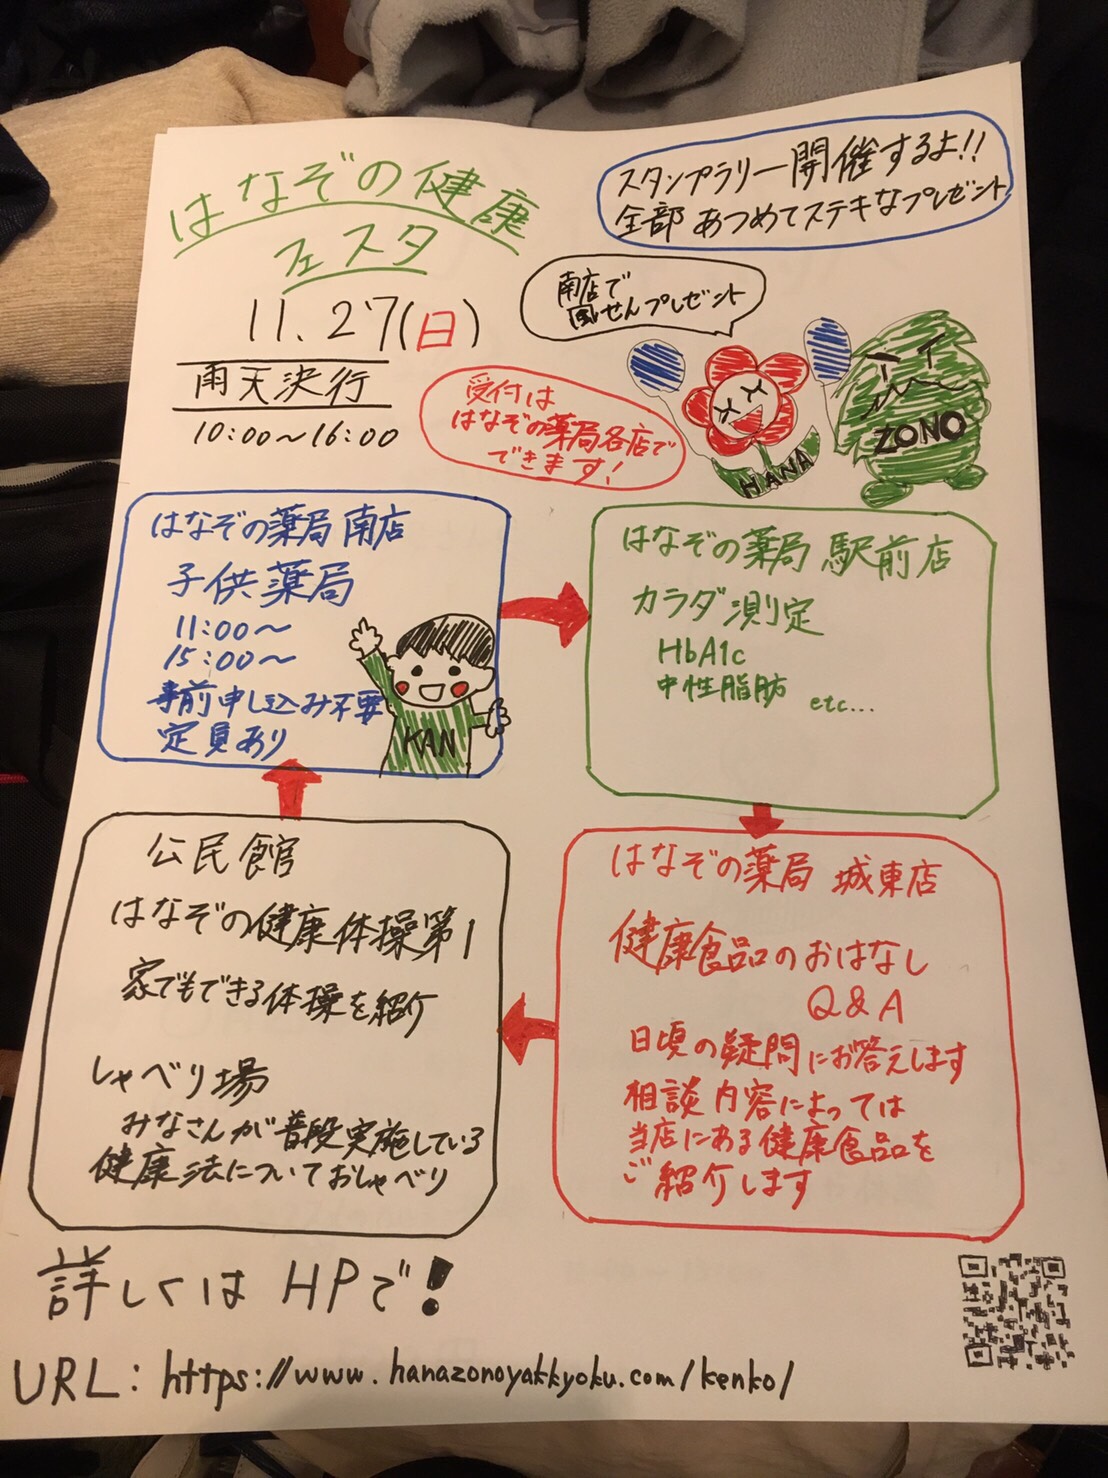 はなぞの健康
フェスタ
11.27(日)
雨天決行
10:00〜16:00
スタンプラリー開催するよ!!
全部あつめてステキなプレゼント
南店で
風せんプレゼント
受付は
はなぞの薬局各店で
できます!
HANA
ZONO
はなぞの薬局 南店
子供薬局
11:00〜
15:00〜
事前申し込み不要
定員あり
KAN
はなぞの薬局 駅前店
カラダ測定
HbA1c
中性脂肪 etc...
公民館
はなぞの健康体操第1
家でもできる体操を紹介
しゃべり場
みなさんが普段実施している
健康法についておしゃべり
はなぞの薬局 城東店
健康食品のおはなし
Q&A
日頃の疑問にお答えします
相談内容によっては
当店にある健康食品を
ご紹介します
詳しくはHPで!
URL: https://www.hanazonoyakkyoku.com/kenko/